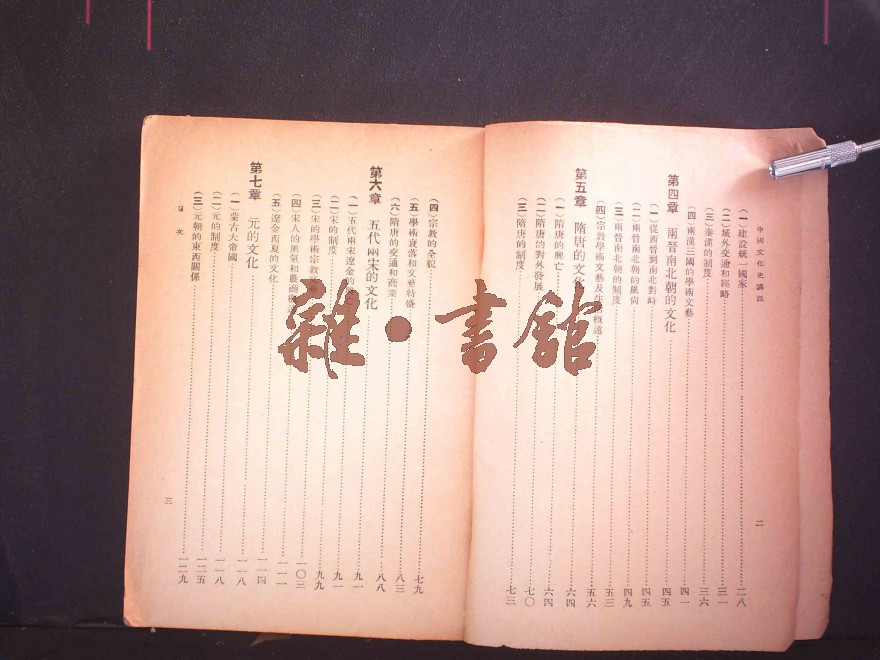 中國文化史講話
二
(一)建設統一國家 二八
(二)域外交通和經略 三一
(三)秦漢的制度 三六
(四)兩漢三國的學術文藝 四一
第四章 兩晉南北朝的文化 四五
(一)從西晉到南北對峙 四五
(二)兩晉南北朝的風尚 四九
(三)兩晉南北朝的制度 五三
(四)宗教學術文藝及生 概述 五六
第五章 隋唐的文化 六四
(一)隋唐的興亡 六四
(二)隋唐的對外發展 七〇
(三)隋唐的制度 七三
(四)宗教的全貌 七九
(五)學術衰落和文藝特盛 八三
(六)隋唐的交通和商業 八八
第六章 五代兩宋的文化 九一
(一)五代兩宋遼金的 九一
(二)宋的制度 九九
(三)宋的學術宗教文藝 一〇三
(四)宋人的風氣和農商 一一一
(五)遼金西夏的文化 一一四
第七章 元的文化 一一八
(一)蒙古大帝國 一一八
(二)元的制度 一二五
(三)元朝的東西關係 一二九
目次
三
雜·書館